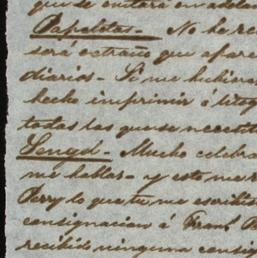 que se evitara en adela
Papeletas.- No he re
será extraño que apare
diarios.- Si me hubiera
hecho imprimir ó litog
todas las que se necesit
Sengel.- Mucho celebra
me hablas- y este me
Perry lo que tu me escribis
consignacion á Frank B
recibido ninguna consig